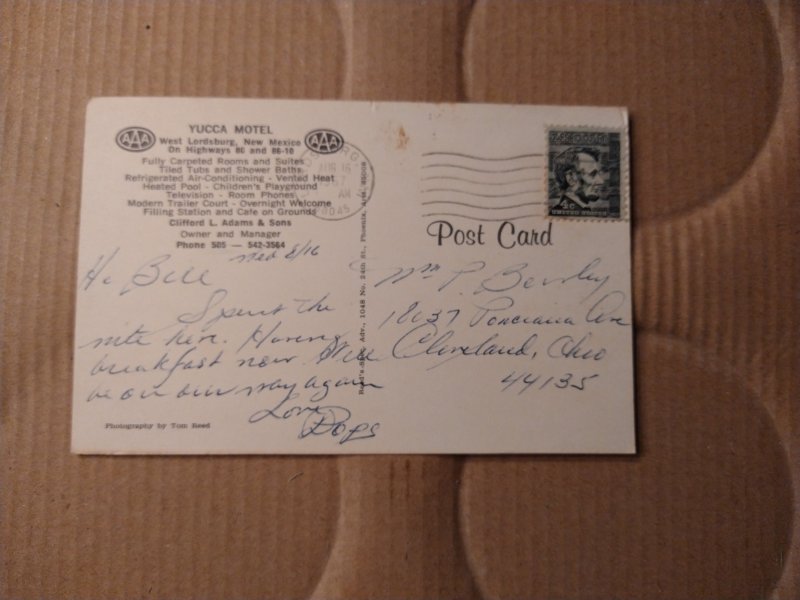 AAA
AAA
YUCCA MOTEL
West Lordsburg, New Mexico
On Highways 80 and 86-10
Fully Carpeted Rooms and Suites
Tiled Tubs and Shower Baths
Refrigerated Air-Conditioning - Vented Heat
Heated Pool - Children's Playground
Television - Room Phones
Modern Trailer Court - Overnight Welcome
Filling Station and Cafe on Grounds
Clifford L. Adams & Sons
Owner and Manager
Phone 505 — 542-3564
Wed 8/16
Hi Bill
Spent the
nite here. Having
breakfast now. Will
be on our way again
Love
Pops
Photography by Tom Reed
Adv., 1048 No. 24th St., Phoenix, Ariz. 85008
AUG 16
AM
88045
4c
UNITED STATES
Post Card
Wm P. Bewley
18037 Ponciana Ave
Cleveland, Ohio
44135